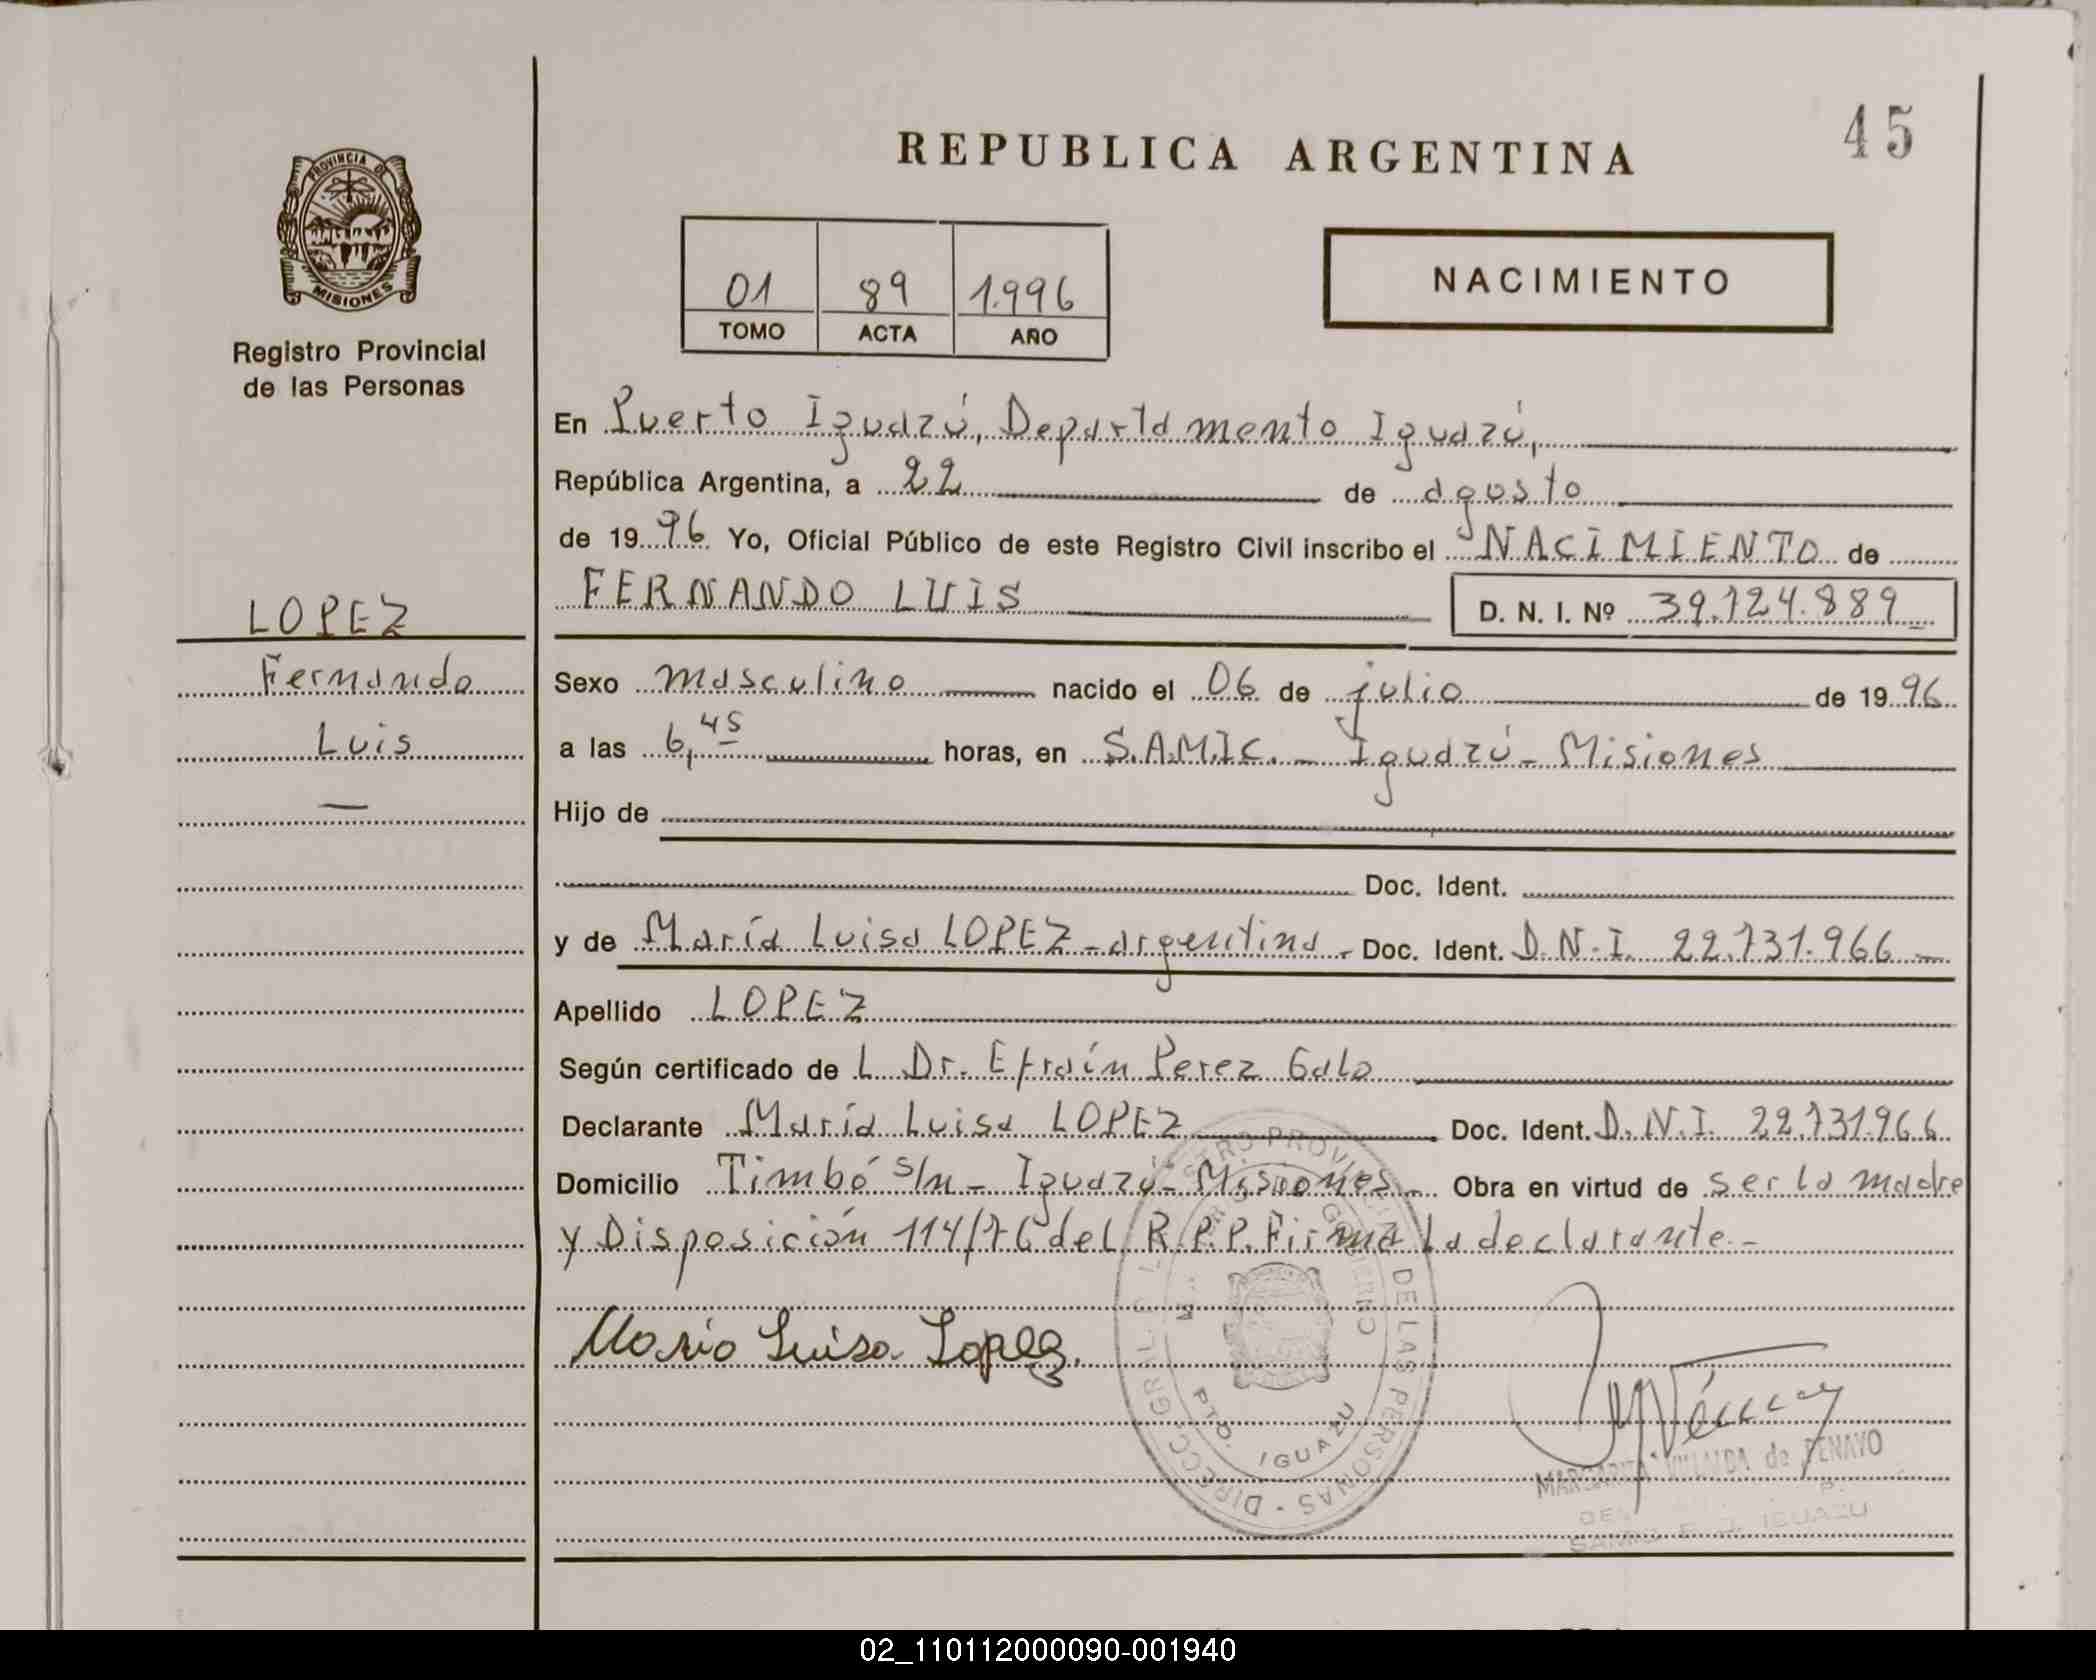 REPUBLICA ARGENTINA
45
PROVINCIA DE
MISIONES
Registro Provincial
de las Personas
01 89 1.996
TOMO ACTA AÑO
NACIMIENTO
En Puerto Iguazú, Departamento Iguazú,
República Argentina, a 22 de agosto
de 1996 Yo, Oficial Público de este Registro Civil inscribo el NACIMIENTO de
FERNANDO LUIS D. N. I. Nº 39.724.889
LOPEZ
Fernando
Luis
Sexo masculino nacido el 06 de julio de 1996
a las 6,45 horas, en S.A.M.I.C. - Iguazú - Misiones
Hijo de
Doc. Ident.
y de María Luisa LOPEZ - argentina - Doc. Ident. D.N.I. 22.731.966
Apellido LOPEZ
Según certificado de L Dr. Efraín Perez Galo
Declarante María Luisa LOPEZ Doc. Ident. D.N.I. 22.731.966
Domicilio Timbó s/n - Iguazú - Misiones - Obra en virtud de ser la madre
y Disposición 114/76 del R.P.P. Firma la declarante.-
Maria Luisa Lopez.
PROVINCIAL DE LAS PERSONAS - DIRECC. GRAL.
GOBIERNO
PTO. IGUAZU
MARGARITA VILLALBA de BENAYO
IGUAZU
02_110112000090-001940